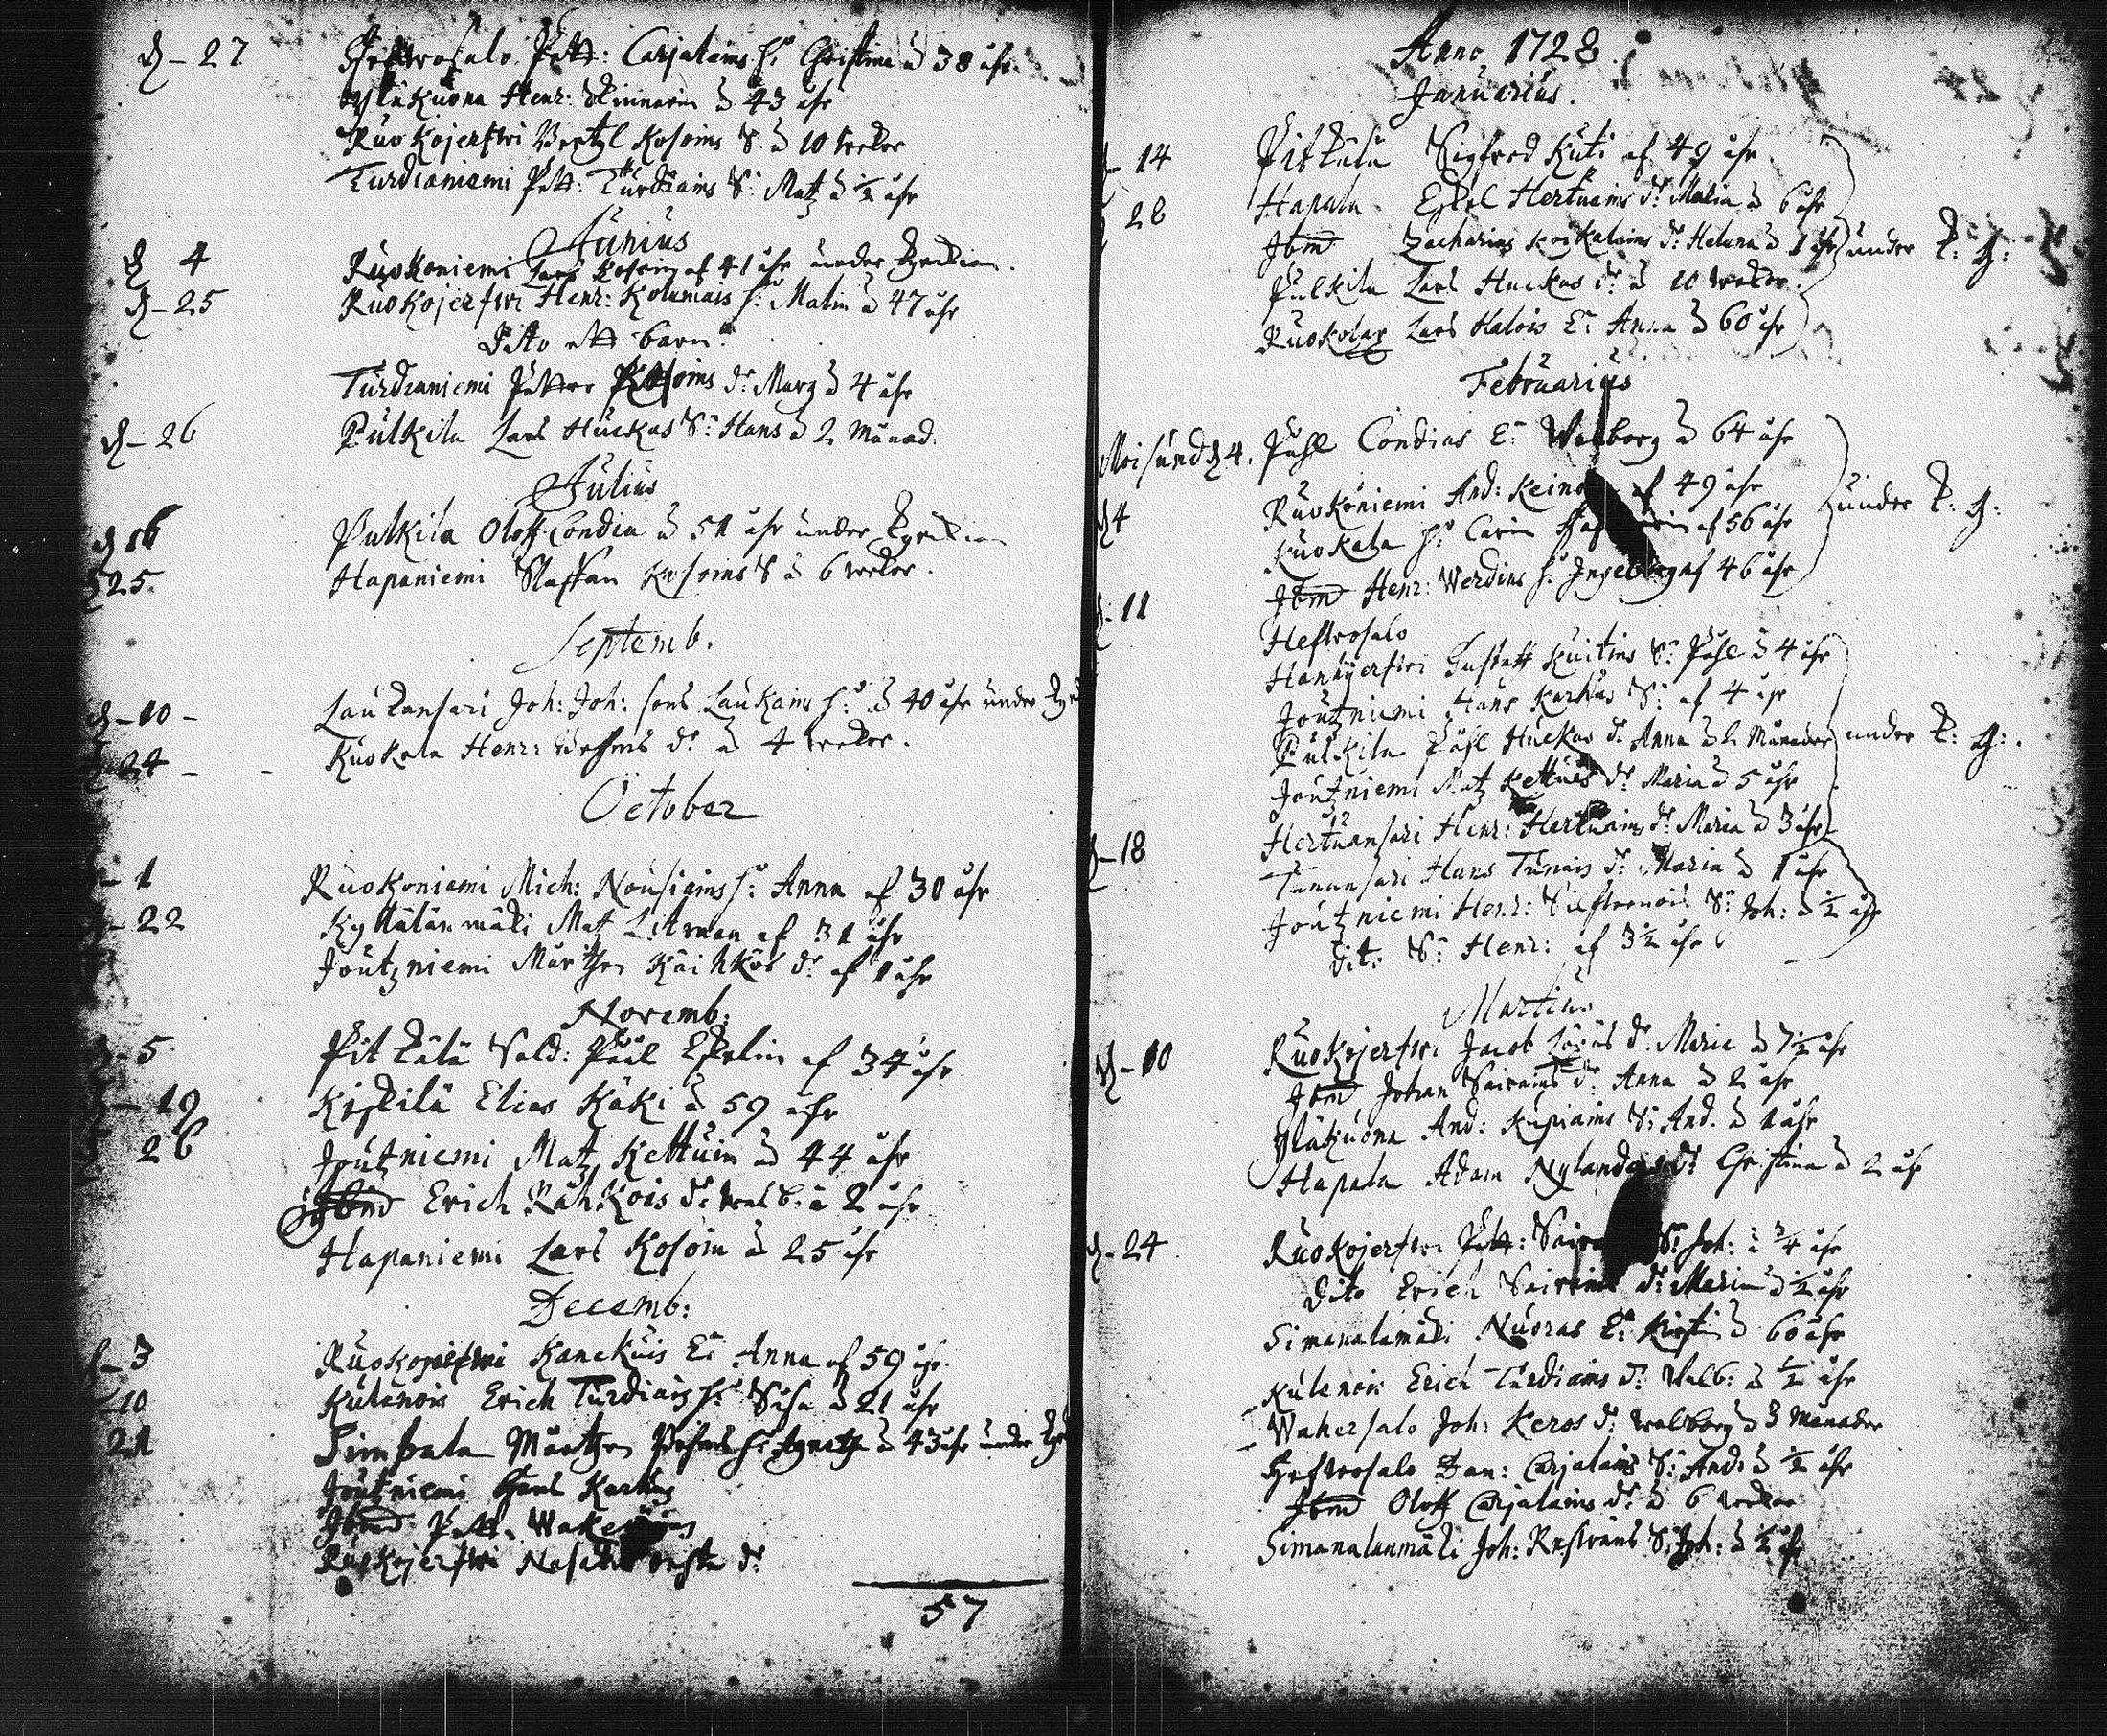 d – 27 Heftrosalo Pett: Carjalains h: Christina å 38 åhr
Yläkuona Henr: Kinnarin å 43 åhr
Ruokojerfwi Bertil Kosoins S. å 10 wekor
Turdianiemi Pett: Turdiains S: Matz å ½ åhr
Junius
d 4 Ruokoniemi Lars Kosoin af 41 åhr under Kyrckian.
d – 25 Ruokojerfwi Henr: Kolumais h: Malin å 47 åhr
Dito ett barn
Turdianiemi Petter Kosoins dr Marg å 4 åhr
d – 26 Pulkila Lars Huckas S: Hans å 2 Månad:
Julius
d 16 Pulkila Oloff Condia å 51 åhr under Kyrckian
d 25. Hapaniemi Staffan Kosoins S å 6 wekor.
Septemb.
d – 10 – Laukansari Joh: Joh: sons Laukains h: å 40 åhr under
d 24 – Kuokala Henr: dr å 4 wekor.
October
– 1 Ruokoniemi Mich: Nousiains h: Anna af 30 åhr
– 22 Kyttälänmäki Matz Litman af 31 åhr
Joutzniemi Mårthen Käihkös dr af 1 åhr
Novemb:
– 5 Pitkälä Sold: Påul Eskelin af 34 åhr
– 19 Kiskilä Elias Käki å 59 åhr
26 Joutzniemi Matz Kettuin å 44 åhr
Ibmd Erich Rähkois dr Walb: å 2 åhr
Hapaniemi Lars Kosoin å 25 åhr
Decemb:
– 3 Ruokojerfwi Kanckuis E: Anna af 59 åhr.
– 10 Kulanois Erich Turdiais h: å 21 åhr
21 Simpala Mårthen h: Agneta å 43 åhr under
Joutzniemi Hans Karhus
Ibmd Pett.
Ruokojerfwi dr
57
Anno 1728.
Januarius.
– 14 Pitkälä Sigfred Kuti af 49 åhr
28 Hapala Eskel Hertuains dr Malin å 6 åhr
Ibmd Zacharias Koikalains dr Helena å 1 åhr under K: g:
Pulkila Lars Huckas dr å 10 wekor.
Ruokolax Lars Halois E: Anna å 60 åhr
Februarius
Moisund d 4. Påhl Condias E: Walborg å 64 åhr
d 4 Ruokoniemi And: af 49 åhr under K: g:
Kuokala h: Carin af 56 åhr
Ibmd Henr: Werdins h: Ingeborg af 46 åhr
d – 11 Heftrosalo
Hanhjerfwi Gustaff Kuitins S: Påhl å 4 åhr
Joutzniemi Hans Karhus S: af 4 åhr
Pulkila Påhl Huckas dr Anna å 2 Månader under K: g:.
Joutzniemi Matz Kettuis dr Maria å 5 åhr
Hertuansari Henr: Hertuains dr Maria å 3 åhr
d – 18 Tunansari Hans Tunais dr Maria å 1 åhr
Joutzniemi Henr: S: Joh: å ½ åhr
Dito S: Henr: af 3½ åhr
Martius
d – 10 Ruokojerfwi Jacob dr Marie å 7½ åhr
Ibmd Johan Sairains dr Anna å 2 åhr
Yläkuona And: Kupiains S: And. å 1 åhr
Hapala Adam dr Christina å 2 åhr
d – 24 Ruokojerfwi Pett: S: Joh: å ¾ åhr
Dito Erich Sairains dr Maria å ½ åhr
Simanalamäki Nuoras E: Kirstin å 60 åhr
Kulenois Erich Turdiains dr Walb: å ½ åhr
Wahersalo Joh: Keros dr Walborg å 3 Månader
Heftrosalo Dan: Carjalains S: And: å ½ åhr
Ibmd Oloff Carjalains dr å 6 wekor
Simanalanmäki Joh: S: Joh: å ½ åhr